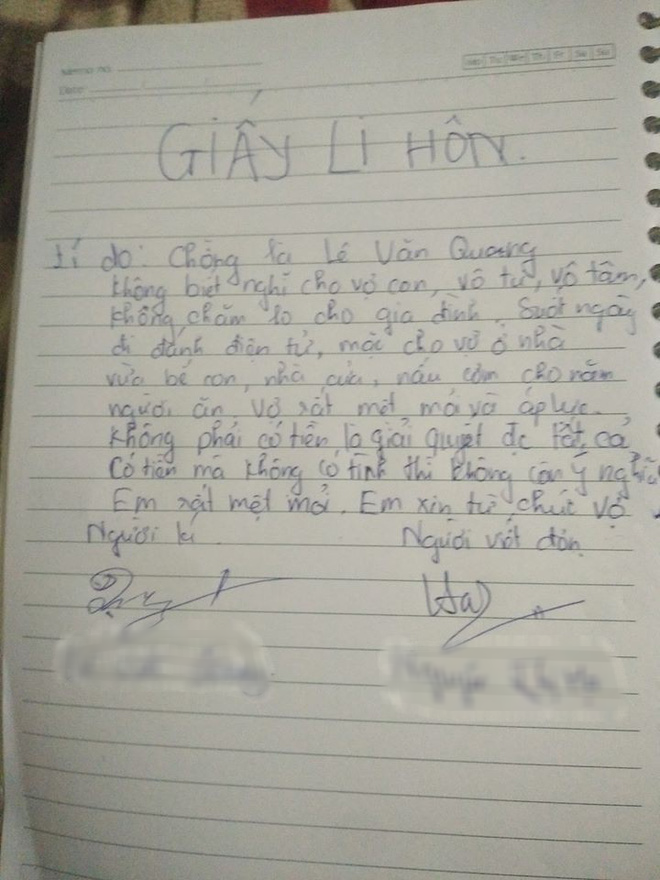 Memo no.
Date
Mo Tu We Th Fr Sa Su
GIẤY LI HÔN.
Lí do: Chồng là Lê Văn Quang
không biết nghĩ cho vợ con, vô tư, vô tâm,
không chăm lo cho gia đình. Suốt ngày
đi đánh điện tử, mặc cho vợ ở nhà
vừa bế con, nhà cửa, nấu cơm cho năm
người ăn. Vợ rất mệt mỏi và áp lực.
Không phải có tiền là giải quyết đc tất cả
Có tiền mà không có tình thì không còn ý nghĩa
Em rất mệt mỏi. Em xin từ chức vợ
Người kí Người viết đơn